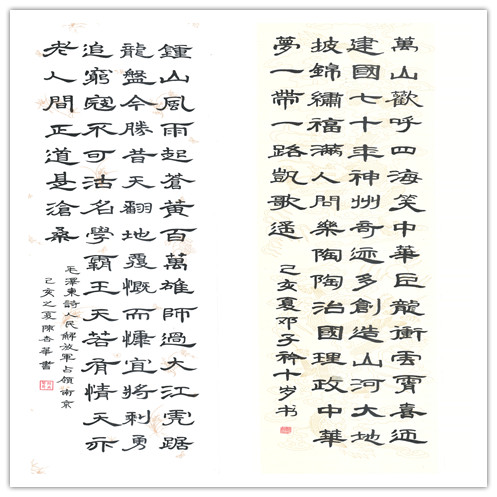 萬山歡呼四海笑中華巨龍衝雲霄喜迎
建國七十年神州奇迹多創造山河大地
披錦繡福滿人間樂陶陶治國理政中華
夢一帶一路凱歌遥
己亥夏邓子衿十岁书
鍾山風雨起蒼黃百萬雄師過大江虎踞
龍盤今勝昔天翻地覆慨而慷宜將剩勇
追窮寇不可沽名學霸王天若有情天亦
老人間正道是滄桑
毛澤東詩人民解放軍占領南京
己亥之夏陳杏華書